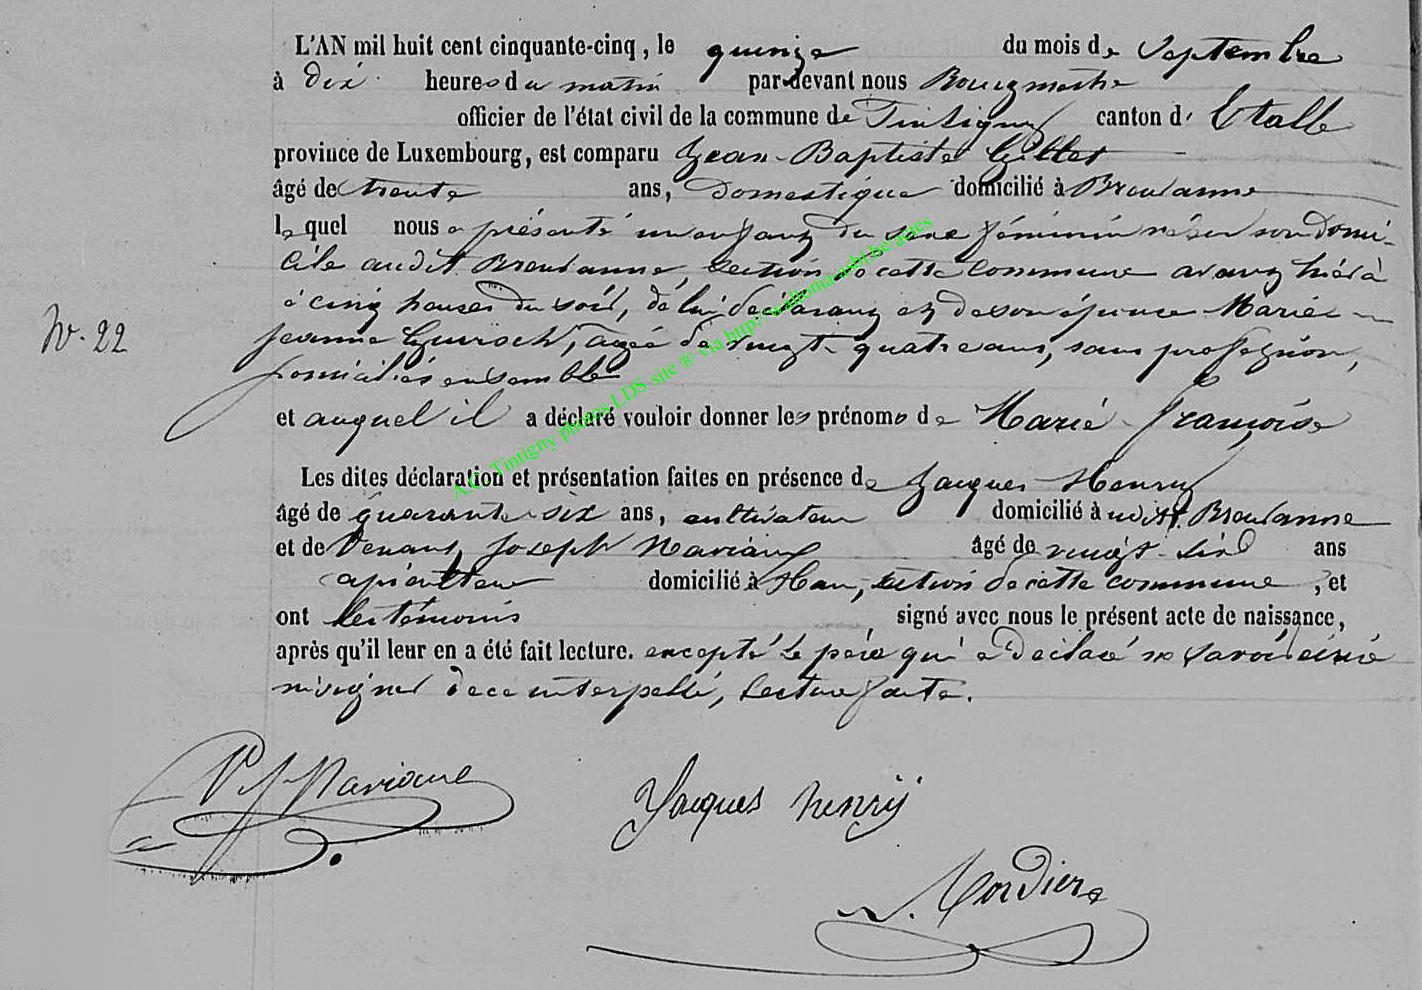 L'AN mil huit cent cinquante-cinq, le quinze du mois de Septembre
à dix heures du matin par-devant nous Bourgmestre
officier de l'état civil de la commune de Tintigny canton d' Etalle
province de Luxembourg, est comparu Jean-Baptiste Gilles
âgé de trente ans, Domestique domicilié à Breuvanne
lequel nous a présenté un enfant du sexe féminin né en son domi-
cile audit Breuvanne section de cette commune avant hier à
à cinq heures du soir, de lui déclarant et de son épouse Marie-
Jeanne agée de vingt-quatre ans, sans profession,
domiciliés ensemble
N°. 22
et auquel il a déclaré vouloir donner les prénoms de Marie-Françoise
Les dites déclaration et présentation faites en présence de Jacques Henry
âgé de quarante-six ans, cultivateur domicilié à udit Breuvanne
et de Venant Joseph âgé de vingt-six ans
apiculteur domicilié à Han, section de cette commune, et
ont les témoins signé avec nous le présent acte de naissance,
après qu'il leur en a été fait lecture. excepté le père qui a déclaré ne savoir écrire
ni signer de ce interpellé, lecture faite.
Jacques henrÿ
A.C. Tintigny photos LDS site ® via http://wallonia-asbl.be/actes